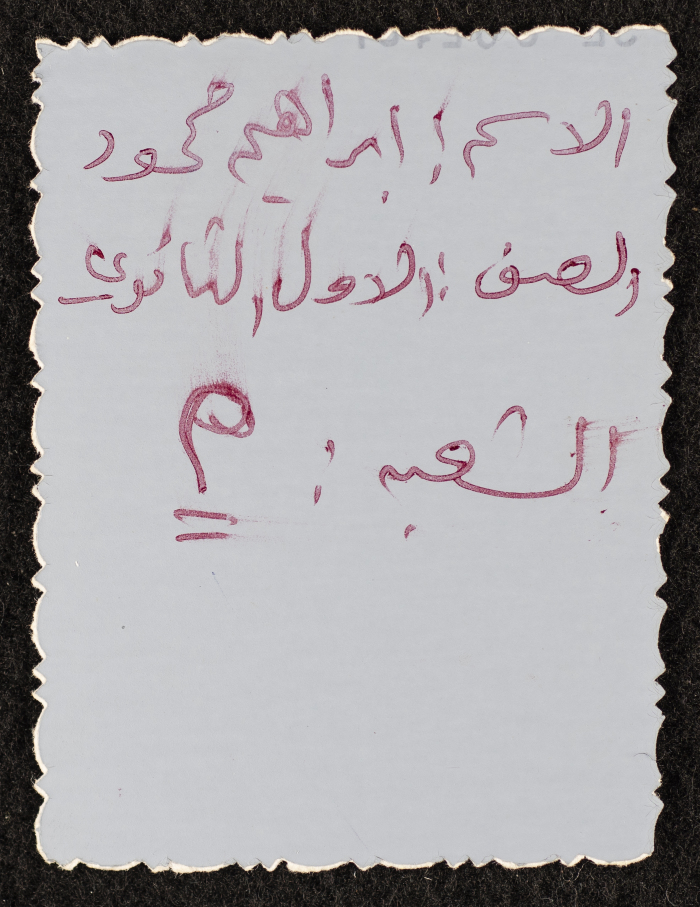 الاسم : ابراهيم محمود
الصف : الاول الثانوي
الشعبه : م